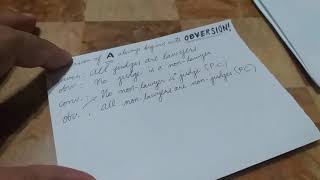 of A always begins with OBVERSION!
: All judges are lawyers
obv: No judge is a non-lawyer
conv: No non-lawyer is judge (P.C)
obv: All non-lawyers are non-judges (P.C)